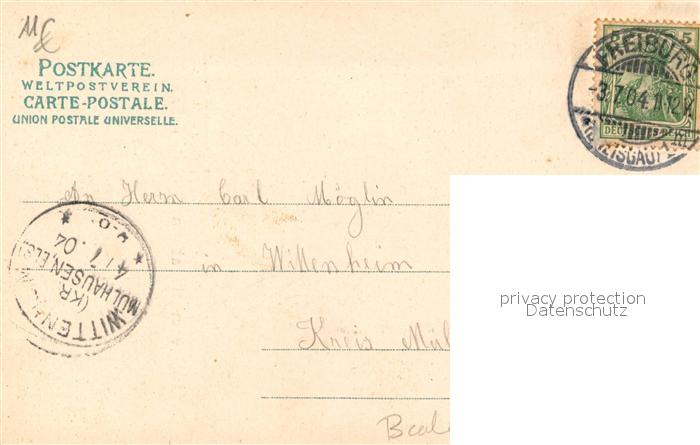 POSTKARTE.
WELTPOSTVEREIN.
CARTE-POSTALE.
UNION POSTALE UNIVERSELLE.
5
FREIBURG
-3.7.04.11-12
DEUTSCHES REICH
An Herrn Carl Möglin
in Wittenheim
Kreis Mül
WITTENHEIM
(KR.
MÜLHAUSEN, ELS.)
4/7.04
privacy protection
Datenschutz